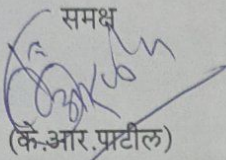 समक्ष
(के.आर.पाटील)